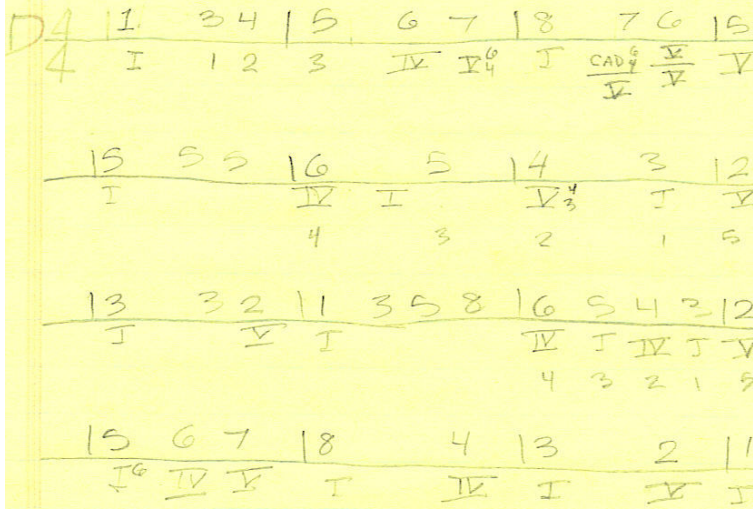 D 4/4 | 1 3 4 | 5 6 7 | 8 7 6 | 5
I 1 2 3 IV V6/4 I CAD6/4/V V/V V
| 5 5 5 | 6 5 | 4 3 | 2
I IV I V4/3 I V
4 3 2 1 5
| 3 3 2 | 1 3 5 8 | 6 5 4 3 | 2
I V I IV I IV I V
4 3 2 1 5
| 5 6 7 | 8 4 | 3 2 | 1
I6 IV V I IV I V I